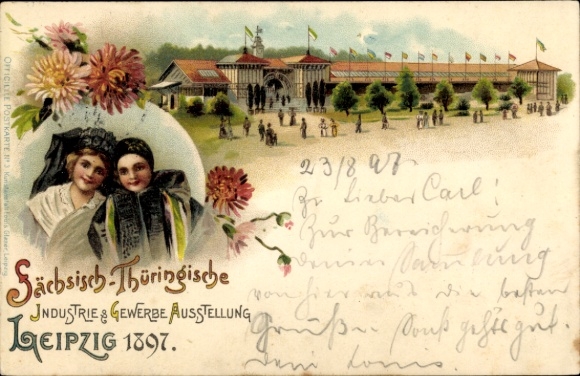 OFFICIELLE POSTKARTE Nº 3
Sächsisch-Thüringische
INDUSTRIE & GEWERBE AUSSTELLUNG
LEIPZIG 1897.
23/8 97
Lieber Carl!
Zur Bereicherung
deiner Sammlung
von hier aus die besten
Grüße. Sonst geht's gut.
dein